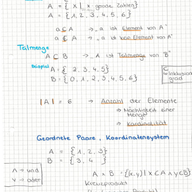 A = { x | x gerade Zahlen }
A = { 1, 2, 3, 4, 5, 6 }
a ∈ A → „a ist Element von A“
a ∉ A → „a ist kein Element von A“
Teilmenge
A ⊆ B → „A ist Teilmenge von B“
Beispiel
A = { 2, 3, 4, 5 }
B = { 0, 1, 2, 3, 4, 5, 6 }
| A | = 6 → Anzahl der Elemente
→ Mächtigkeit einer Menge
→ Kardinalität
Geordnete Paare, Koordinatensystem
A = { 1, 2, 3 }
B = { 3, 4 }
∧ → und
∨ → oder
A × B = { (x, y) | x ∈ A ∧ y ∈ B }
Kreuzprodukt